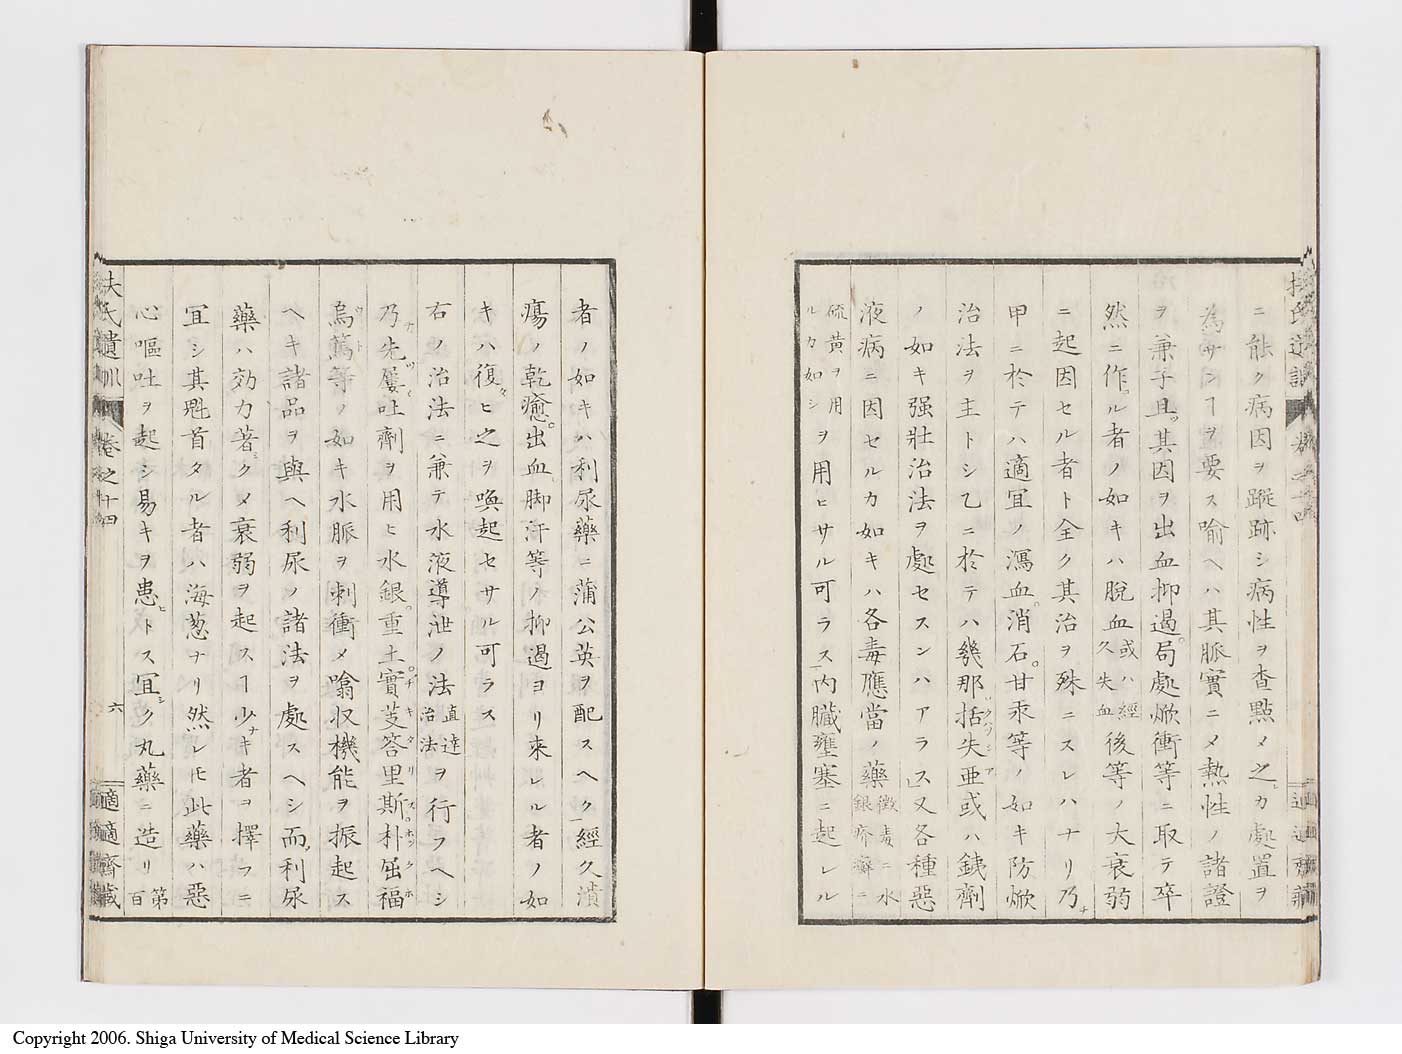 ニ能ク病因ヲ蹤跡シ病性ヲ查點メ之カ處置ヲ
為サンヿヲ要ス喻ヘハ其脈實ニメ熱性ノ諸證
ヲ兼子且ッ其因ヲ出血抑遏局處焮衝等ニ取テ卒
然ニ作ル者ノ如キハ脫血或ハ經久失血後等ノ大衰弱
ニ起因セル者ト全ク其治ヲ殊ニスレハナリ乃ナ
甲ニ於テハ適宜ノ瀉血消石甘汞等ノ如キ防焮
治法ヲ主トシ乙ニ於テハ幾那括失亜或ハ銕劑
ノ如キ强壯治法ヲ處セスンハアラス又各種惡
液病ニ因セルカ如キハ各毒應當ノ藥黴毒ニ水銀疥癬ニ
硫黄ヲ用ルカ如シヲ用ヒサル可ラス內臟壅塞ニ起レル
者ノ如キハ利尿藥ニ蒲公英ヲ配スヘク經久潰
瘍ノ乾癒出血脚汗等ノ抑遏ヨリ來レル者ノ如
キハ復ヒ之ヲ喚起セサル可ラス
右ノ治法ニ兼テ水液導泄ノ法直達治法ヲ行フヘシ
乃先屢吐劑ヲ用ヒ水銀重土實芰答里斯朴屈福
烏篤等ノ如キ水脈ヲ刺衝メ噏収機能ヲ振起ス
ヘキ諸品ヲ與ヘ利尿ノ諸法ヲ處スヘシ而利尿
藥ハ効力著クメ衰弱ヲ起スヿ少キ者ヲ擇フニ
宜シ其魁首タル者ハ海葱ナリ然レ𪜈此藥ハ惡
心嘔吐ヲ起シ易キヲ患トス宜ク丸藥ニ造リ第百
扶氏遺訓 卷之十四
六
適適齋藏